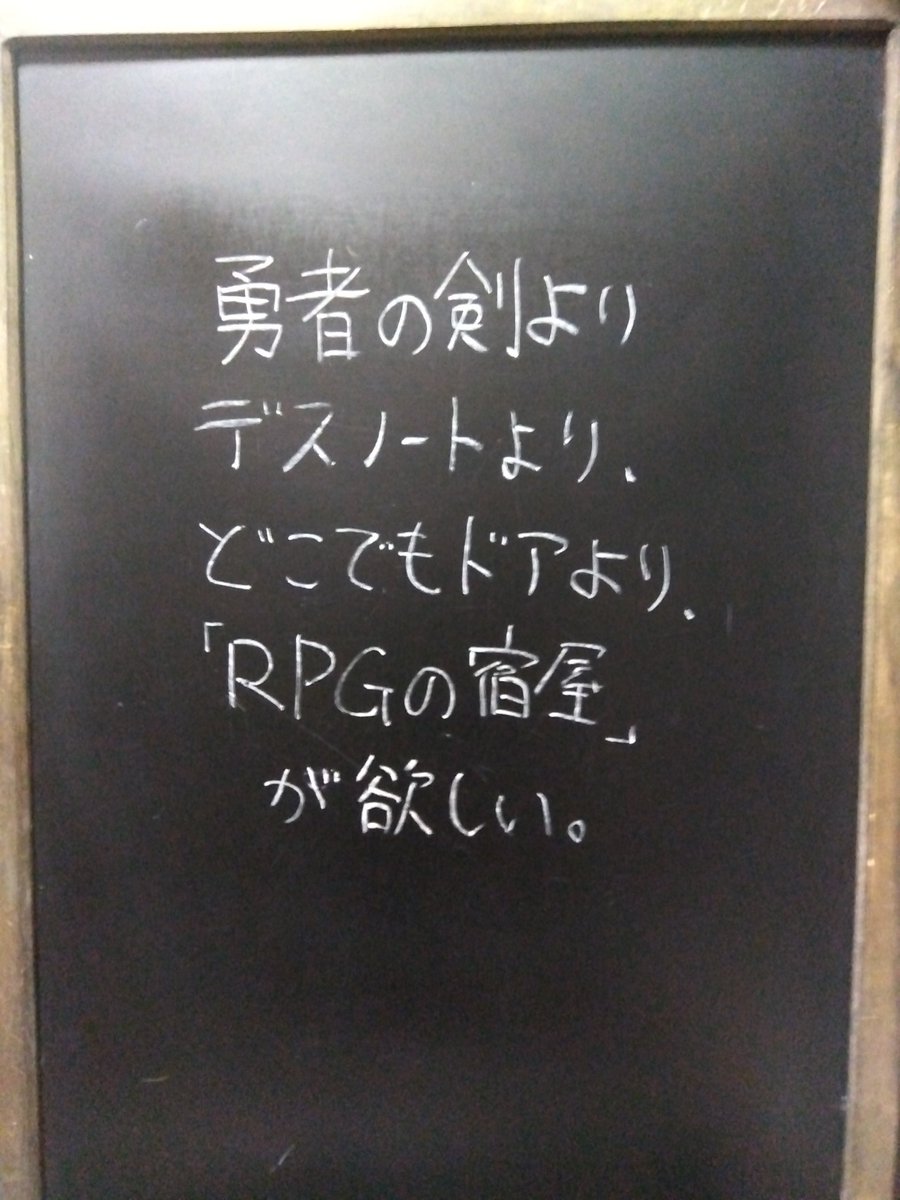 勇者の剣より
デスノートより、
どこでもドアより、
「RPGの宿屋」
が欲しい。